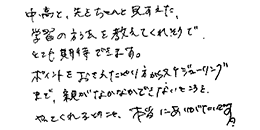 中高と、先をちゃんと見すえた、
学習の方法を教えてくれそうで、
とても期待できます。
ポイントをおさえたやり方からスケジューリング
まで、親がなかなかできないところを
やってくれるところも、本当にありがたいです。